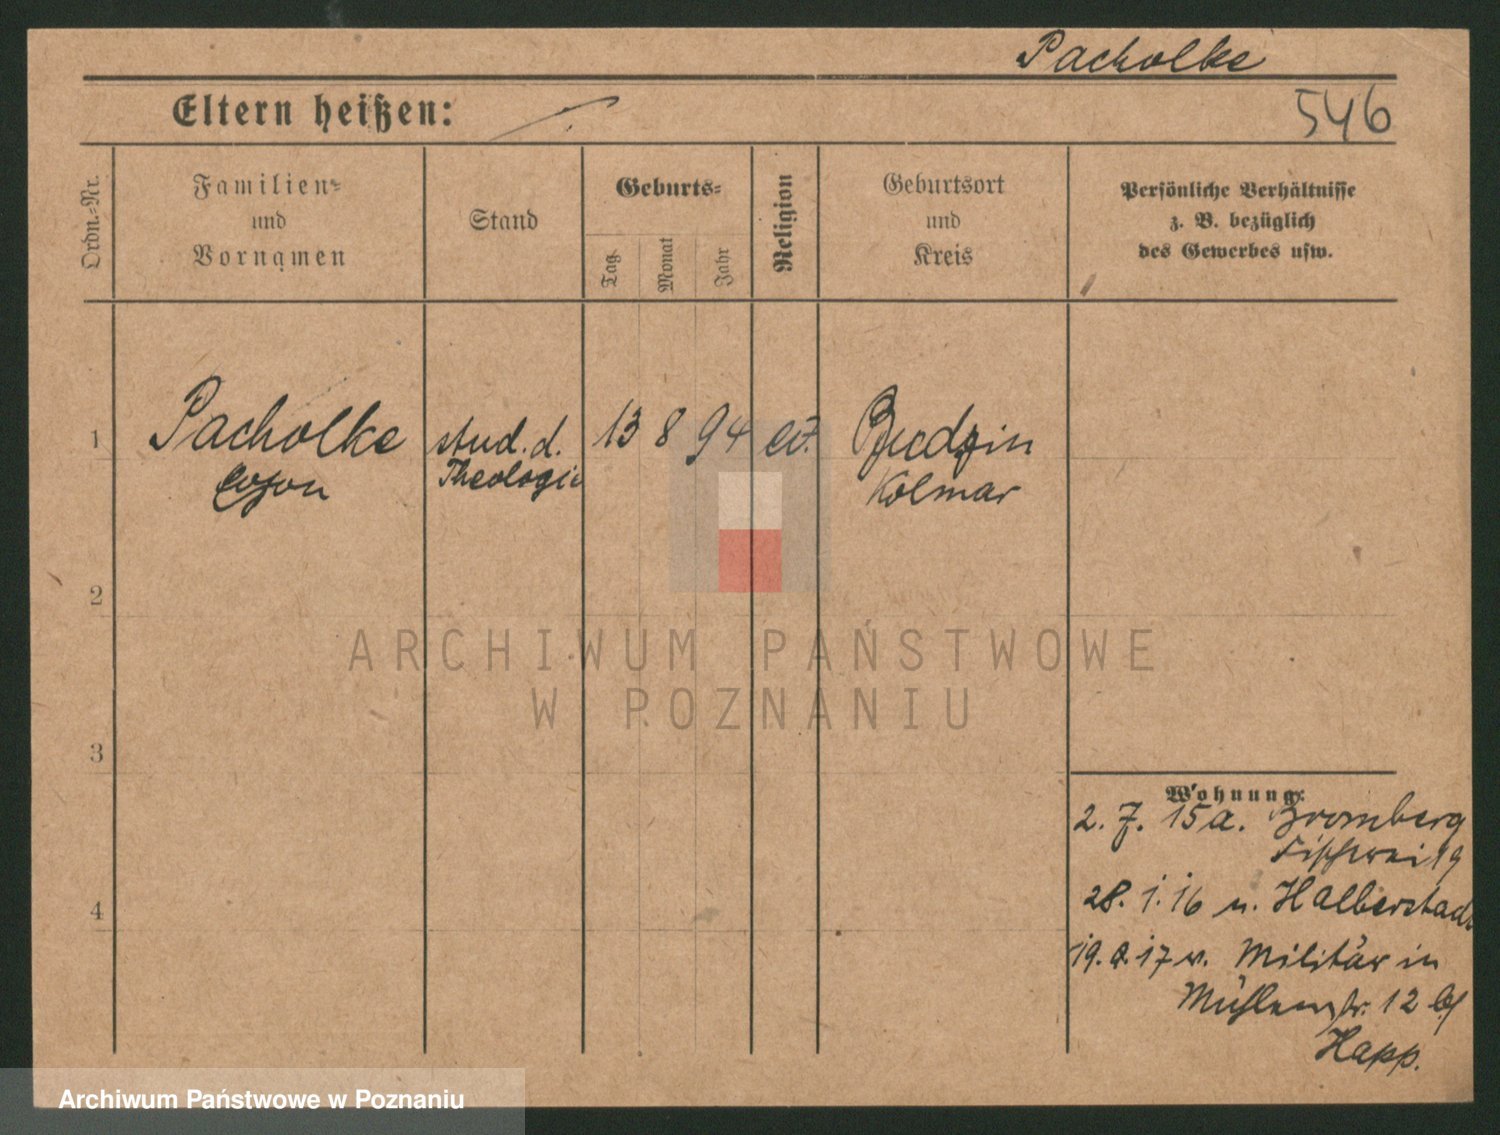 Pacholke
Eltern heißen:
546
Ordn.=Nr.
Familien=
und
Vornamen
Stand
Geburts=
Tag
Monat
Jahr
Religion
Geburtsort
und
Kreis
Persönliche Verhältnisse
z. B. bezüglich
des Gewerbes usw.
1
Pacholke
stud. d.
Theologie
13
8
94
ev.
Budzin
Kolmar
2
ARCHIWUM PAŃSTWOWE
W POZNANIU
3
Wohnung:
2. 7. 15 a. Bromberg
19
4
28. 1. 16 n. Halberstadt
19. 17 v. Militär in
Mühlenstr. 12 bf
Happ.
Archiwum Państwowe w Poznaniu